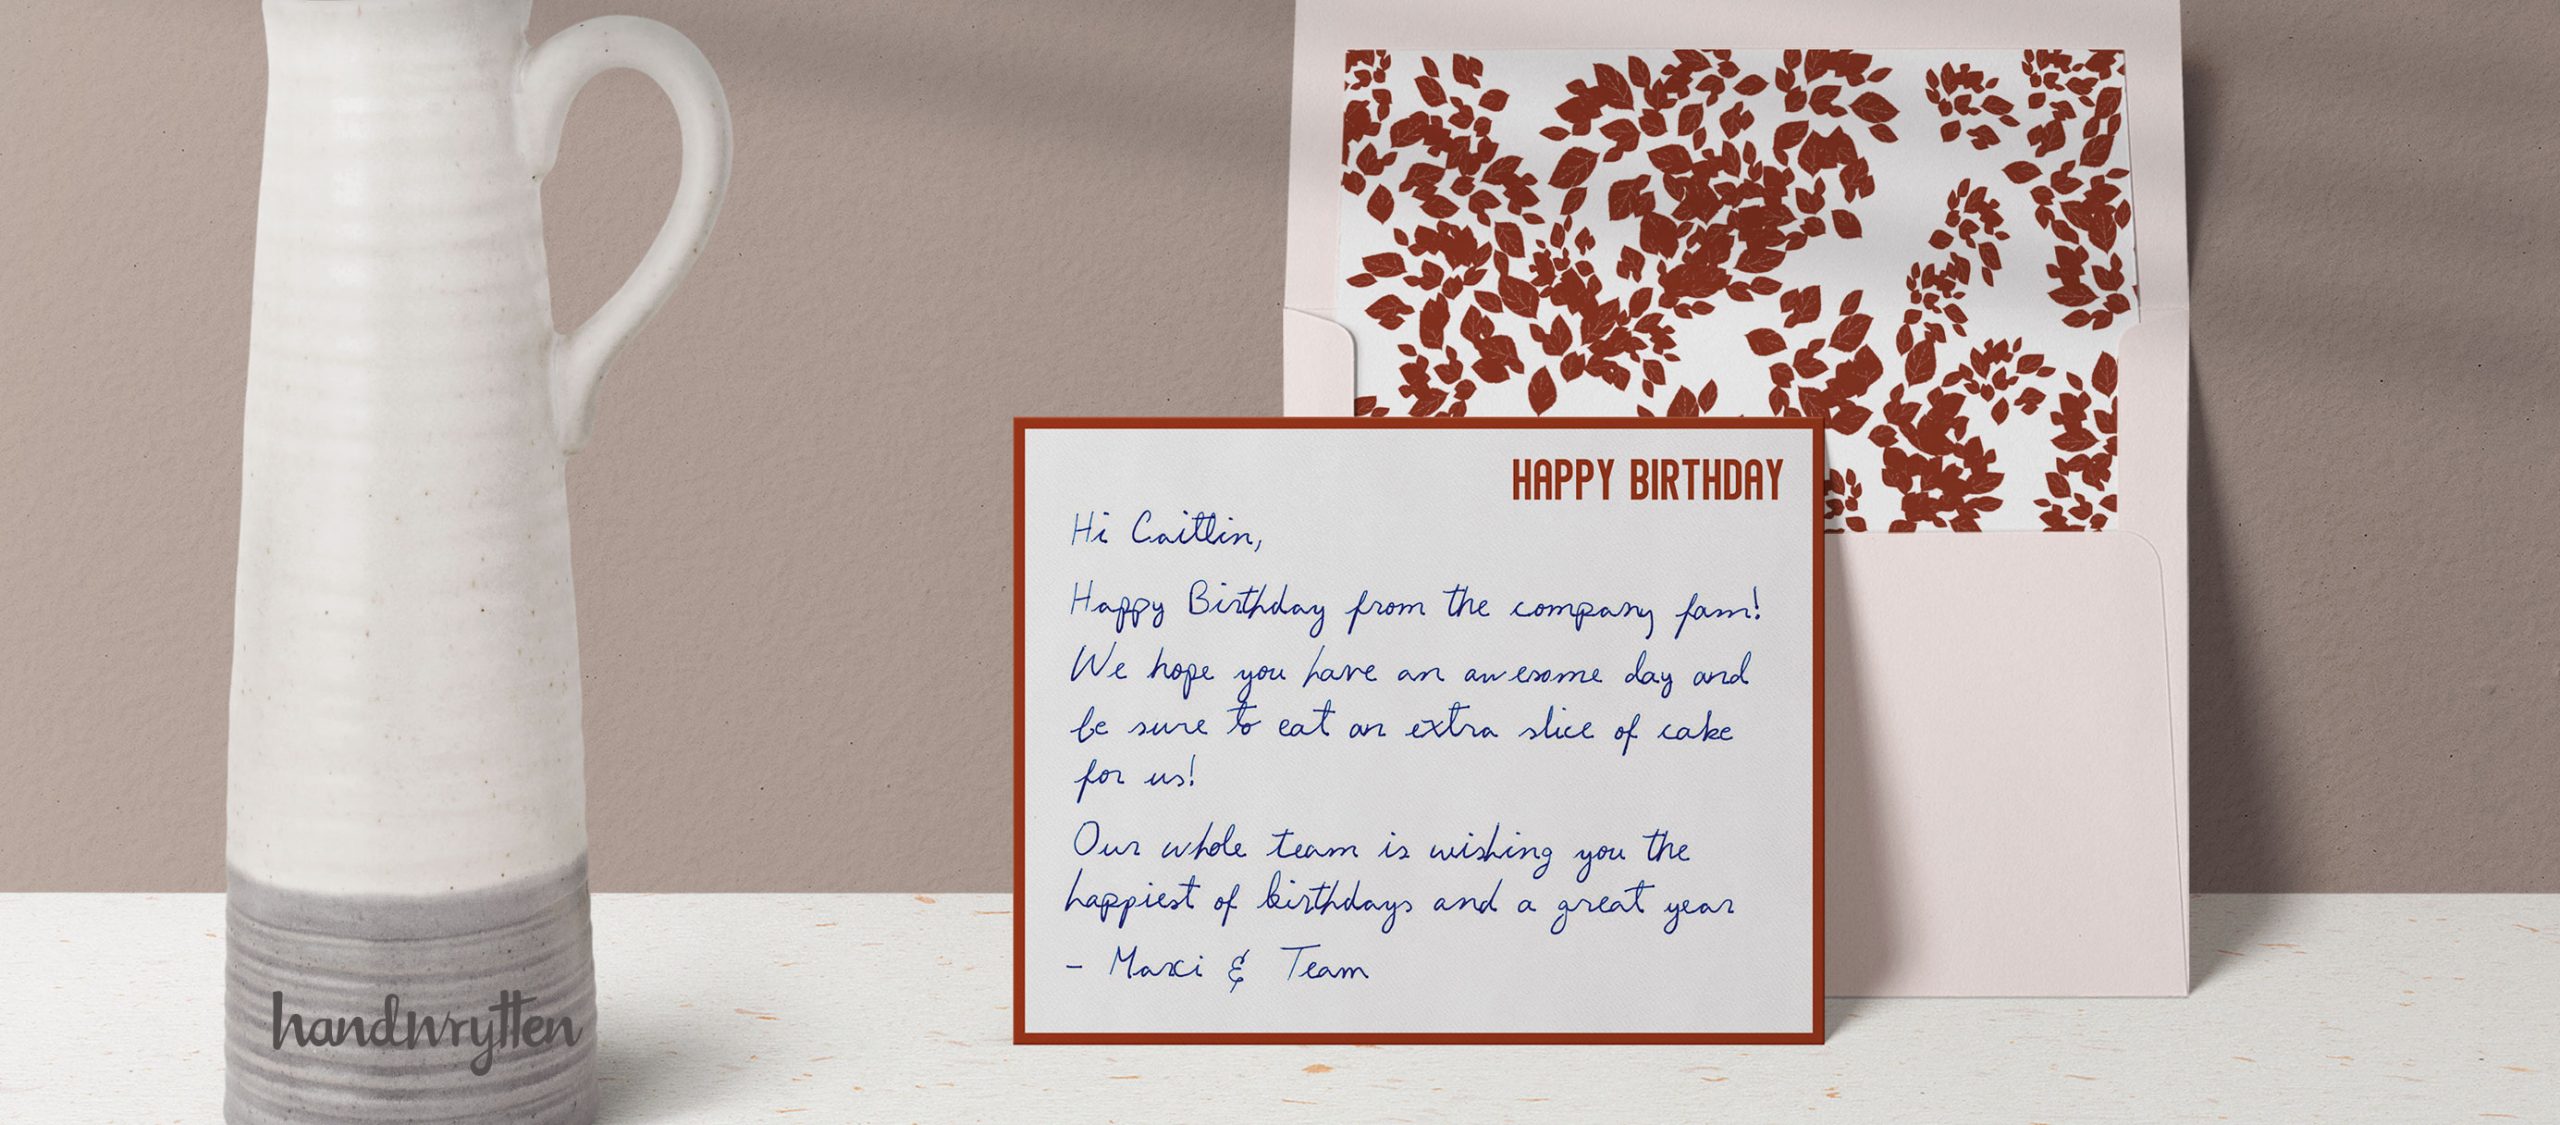 HAPPY BIRTHDAY
Hi Caitlin,
Happy Birthday from the company fam!
We hope you have an awesome day and
be sure to eat an extra slice of cake
for us!
Our whole team is wishing you the
happiest of birthdays and a great year
- Marci & Team
handwrytten